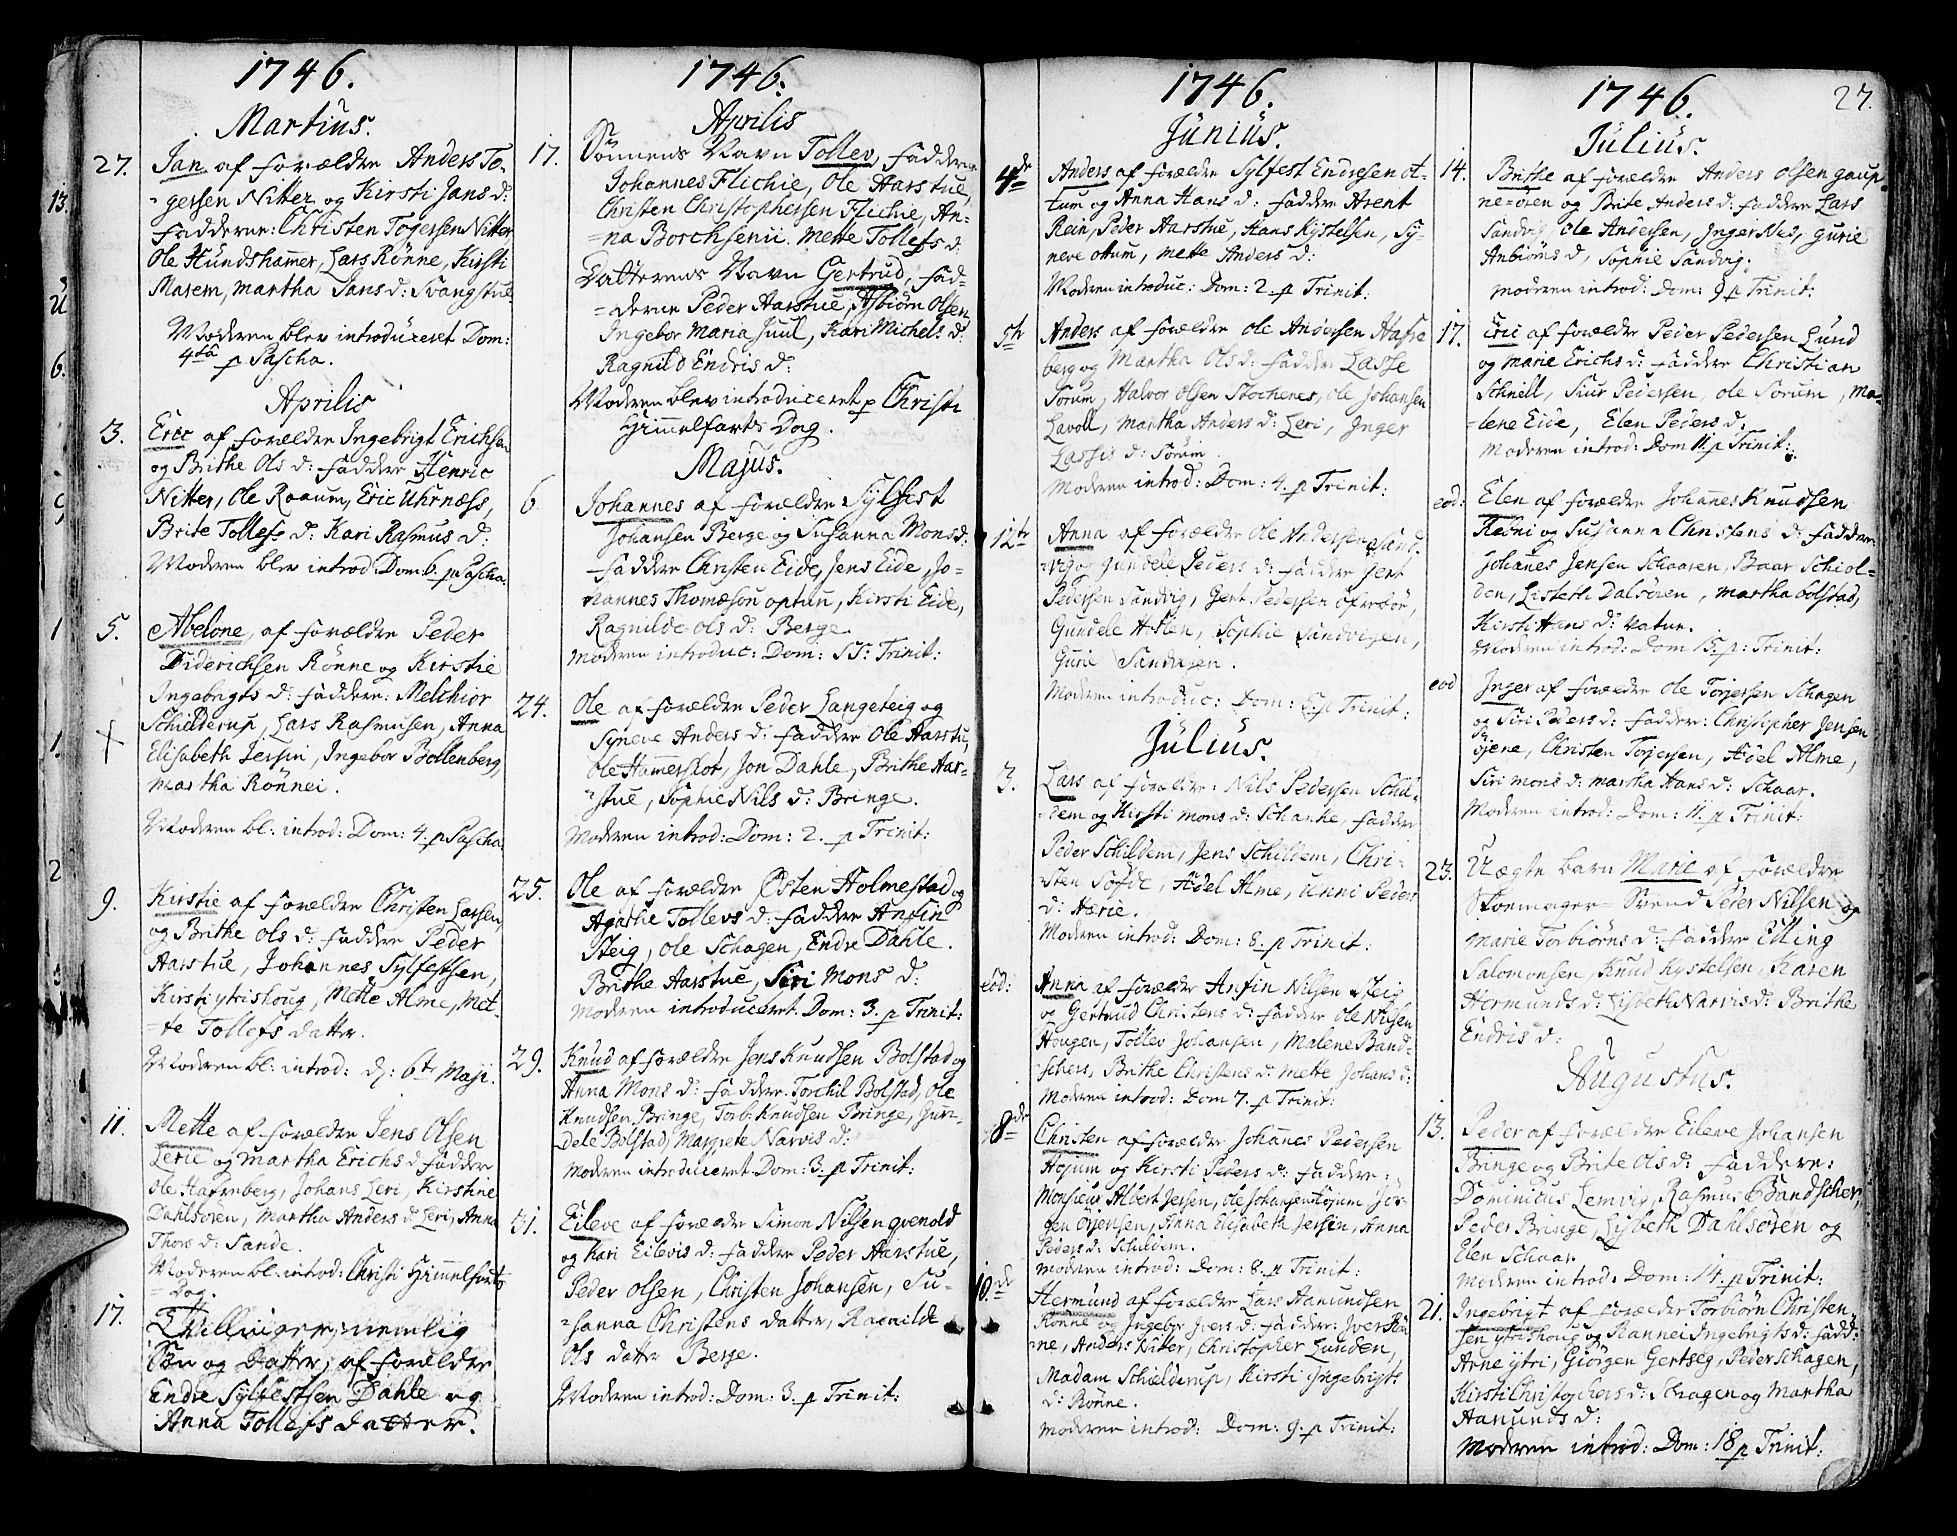 1746.
Martius.
27. Jan af forældre Anders To-
gersen Nitter og Kirsti Jans d:
Fadderne: Christen Togersen Nitter
Ole Hundshamer, Lars Rönne, Kirsti
Marem, Martha Jans d: Svangstue
Moderen blev introduceret Dom:
4ta p Pascha.
Aprilis
3. Eric af forældre Ingebrigt Erichsen
og Brithe Ols d: faddere Henric
Nitter, Ole Roaum, Eric Uhrnæss,
Brite Tollefs d: Kari Rasmus d.
Moderen blev introd Dom 6. p Pascha.
5. Abelone, af forældre Peder
Diderichsen Rönne og Kirstie
Ingebrigts d: faddere: Melchior
Schilderup, Lars Rasmusen, Anna
Elisabeth Jersin, Ingebor Bollenberg,
Martha Rönnei.
Moderen bl: introd: Dom: 4. p Pascha.
9. Kirstie af forældre Christen Larsen,
og Brithe Ols d: faddere Peder
Aarstue, Johannes Sylfestsen,
Kirsti ytriskoug, Mette Alme, Met-
te Tollefs datter.
Moderen bl: introd: d: 6te Maji.
11. Mette af forældre Jens Olsen
Lerie og Martha Erichs d: faddere
Ole Hafrenberg, Johans Leri, Kirstine
Dahlsören, Martha Anders d: Leri, Anna
Thors d: Sande.
Moderen bl: introd: Christi Himmelfarts
= Dag.
17. Tvillinger, nemlig
Sön og Datter, af forældre
Endre Sylfestsen Dahle og
Anna Tollefs datter.
1746.
Aprilis
17. Sönnens Navn Tollev, Faddere
Johannes Flichie, Ole Aarstue,
Christen Christophersen Flichie, An-
=na Borchsenii. Mette Tollefs d:
Datterens Navn Gertrud, fad-
=derne Peder Aarstue, Asbiörn Olsen
Ingebor Maria Juul, Kari Michels d:
Ragnild Endris d:
Moderen blev introduceret p Christi
Himmelfarts Dag.
Majus.
6 Johannes af forældre Sylfest
Johansen Berge og Susanna Mons d:
faddere Christen Eide, Jens Eide, Jo-
hannes Thomæson optun, Kirsti Eide,
Ragnilde Ols d: Berge.
Moderen introduc: Dom: SS: Trinit:
24. Ole af forældre Peder Langeteig og
Syneve Anders d: faddere Ole Aarstue,
Ole Hamerslot, Jon Dahle, Brithe Aar-
stue, Sophie Nils d: Bringe.
Moderen introd: Dom: 2. p Trinit:
25. Ole af forældre Östen Holmestad og
Agathe Tollevs d: faddere Anfin
Steig, Ole Schagen, Endre Dahle.
Brithe Aarstue, Siri Mons d:
Moderen introduceret Dom: 3. p Trinit:
29. Knud af forældre Jens Knudsen Bolstad og
Anna Mons d: faddere Torchil Bolstad, Ole
Knudsen Bringe, Torb: Knudsen Bringe, Gun-
dele Bolstad, Margrete Narvis d:
Moderen introduceret Dom: 3. p Trinit:
31. Eileve af forældre Simon Nilsen qvenold
og Kari Eilevis d: faddere Peder Aarstue,
Peder Olsen, Christen Johansen, Su-
=sanna Christens datter, Ragnilde
Ols datter Berge.
Moderen introd: Dom: 3. p Trinit:
1746.
Junius.
4de Anders af forældre Sylfest Endresen ot-
tum og Anna Hans d: faddere Arent
Rein, Peder Aarstue, Hans Kystelsen, Sy-
neve ottum, Mette Anders d:
Moderen introduc: Dom: 2. p Trinit:
5te Anders af forældre Ole Andersen Hafre
berg og Martha Ols d: faddere Lasse
Sorum, Halvor Olsen Stochenes, Ole Johansen
Lavoll, Martha Anders d: Leri, Inger
Lassis d: Sorum.
Moderen introd: Dom: 4. p Trinit:
12te Anna af forældre Ole Andersen Sand-
vig og Gundele Peders d: faddere Gert
Pedersen Sandvig, Gert Pedersen
Gundele, Sophie Sandvigen,
Gurie Sandvigen.
Moderen introduc: Dom: p Trinit:
Julius.
3. Lars af forældre: Nils Pedersen Schil-
dem og Kirsti Mons d: Schanke, faddre
Peder Schildem, Jens Schildem, Chri-
sten Sofde, Adel Alme, Unni Peders
d: Hærie.
Moderen introd: Dom: 8. p Trinit:
eod: Anna af forældre Anfin Nilsen Steig
og Gertrud Christens d: faddere Ole Nilsen
Hougen, Tollev Johansen, Malene Band-
schers, Brithe Christens d: Mette Johans d:
Moderen introd: Dom 7. p Trinit:
8de Christen af forældre Johannes Pedersen
Hojum og Kirsti Peders d: faddere:
Monsieur Albert Jersen, Ole Johansen Hojum, Jör-
gen Orjensen, Anna Elisabeth Jersin, Anna
Peders d: Schildem.
Moderen introd: Dom: 8. p Trinit:
10.de Hermund af forældre Lars Aamundsen
Rönne og Ingebor Ivers d: faddere: Iver Rön
ne, Anders Nitter, Christopher Lunden,
Madam Schielderup, Kirsti Ingebrigts
d: Rönne.
Moderen introd: Dom: 9. p Trinit:
1746. 27.
Julius.
14. Brithe af forældre Anders Olsen gaup-
ne=öien og Brite Anders d: faddere Lars
Sandvig Ole Andersen, Inger Nes, Gurie
Anbiörns d, Sophie Sandvig.
Moderen introd: Dom: 9 p Trinit:
17. Eric af forældre Peder Pedersen Lund
og Marie Erichs d: faddere Christian
Schnell, Siur Pedersen, Ole Sorum, Ma-
lene Eide, Elen Peders d:
Moderen introd: Dom 11. p Trinit:
eod: Elen af forældre Johannes Knudsen
Redni og Susanna Christens d: faddere:
Johanes Jensen Schaaren, Baar Schiol-
den, Lisbeth Dalsören, Martha bolstad,
Kirsti Hans d: Vatne.
Moderen introd: Dom 15. p: Trinit:
eod Inger af forældre Ole Torjersen Schagen
og Siri Peders d: faddere: Christopher Jensen
öjene, Christen Torjersen, Adel Alme,
Siri Mons d: Martha Hans d: Schaar.
Moderen introd: Dom: 11. p Trinit:
23. Uægte barn Marie af forældre
Skoemager=Svend Peder Nilsen og
Marie Torbiörns d: faddere Elling
Salomonsen, Knud Kystelsen, Karen
Hermunds d: Lisbeth Narvis d: Brithe
Endris d:
Augustus.
13. Peder af forældre Eileve Johansen
Bringe og Brite Ols d: faddere:
Dominicus Lemvig, Rasmus Bandscher,
Peder Bringe, Lisbeth Dahlsören og
Elen Schaar.
Moderen introd: Dom: 14. p Trinit:
21. Ingebrigt af forældre Torbiörn Christen-
sen ytriskoug og Rannei Ingebrigts d: fadd:
Arne ytri, Giörgen Gertseg, Peder Schagen,
Kirsti Christophers d: Schagen og Martha
Aamunds d:
Moderen introd: Dom: 18 p Trinit: